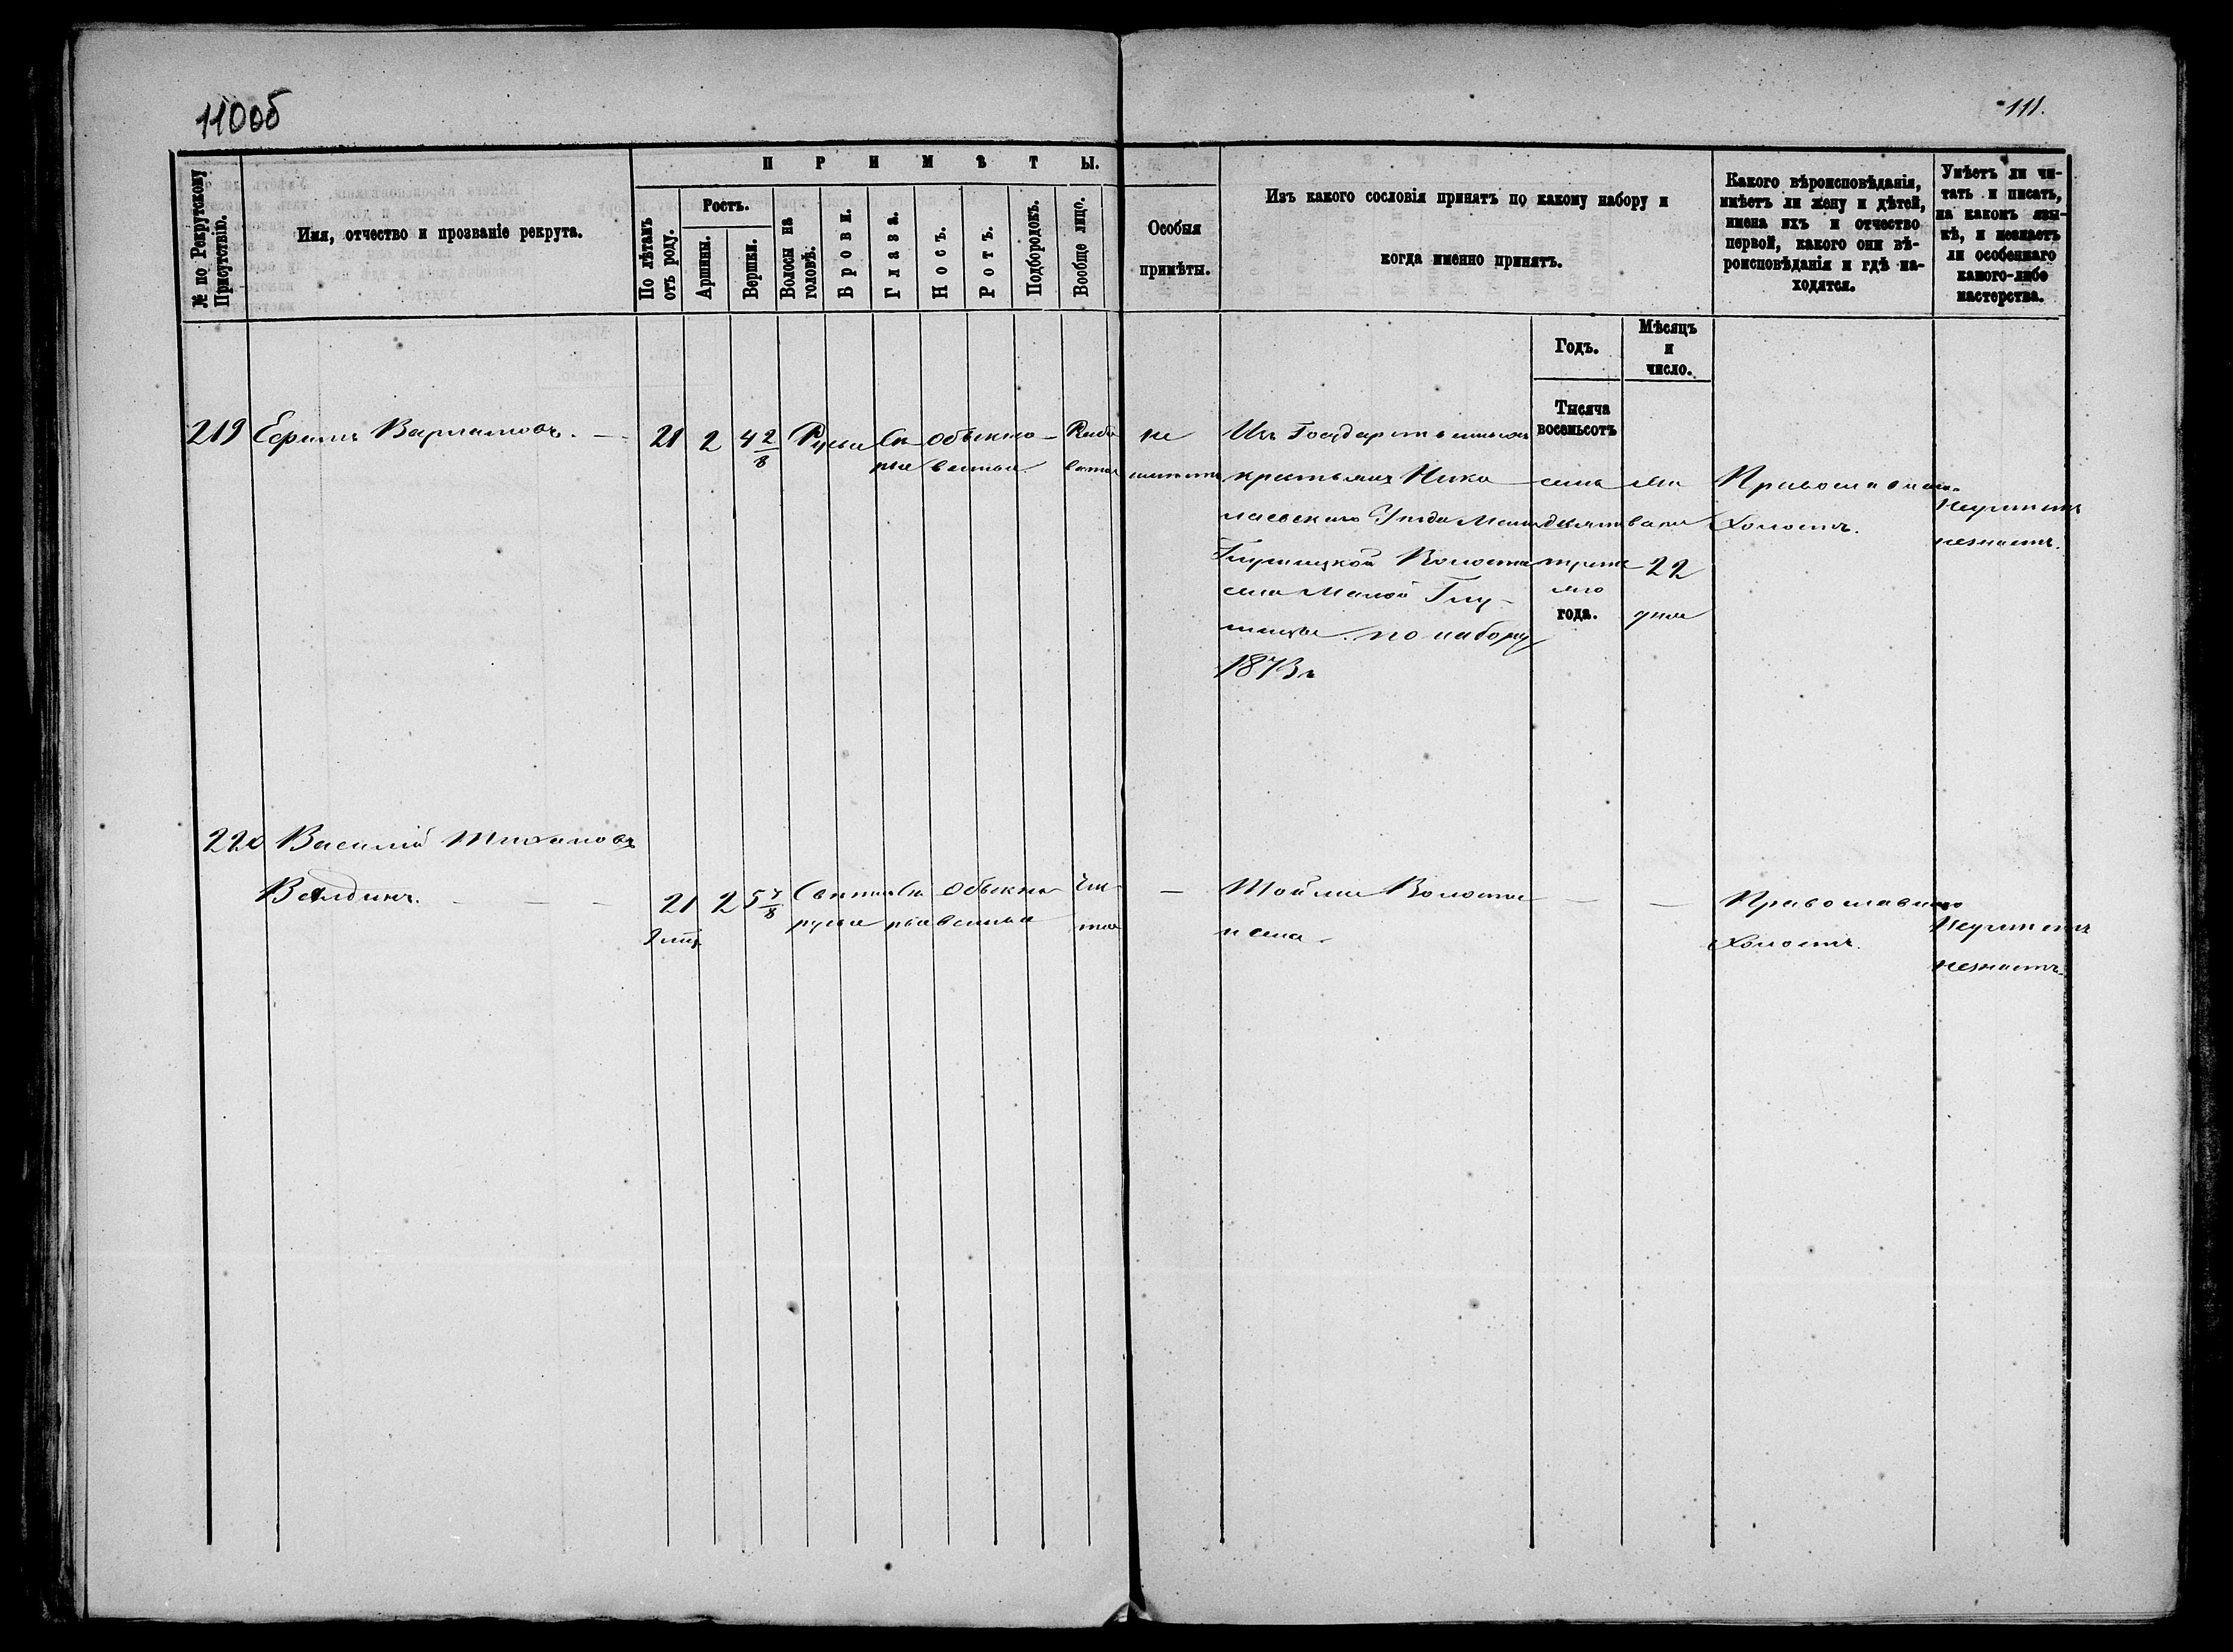 110об
111.
№ по Рекрутскому Присутствію.
Имя, отчество и прозваніе рекрута.
ПРИМѢТЫ.
По лѣтамъ отъ роду.
Ростъ.
Аршины.
Вершки.
Волосы на головѣ.
Брови.
Глаза.
Носъ.
Ротъ.
Подбородокъ.
Вообще лицо.
Особыя
примѣты.
Изъ какого сословія принятъ по какому набору и
когда именно принятъ.
Какого вѣроисповѣданія,
имѣетъ ли жену и дѣтей,
имена ихъ и отчество
первой, какого они вѣ-
роисповѣданія и гдѣ на-
ходятся.
Умѣетъ ли чи-
тать и писать,
на какомъ язы-
кѣ, и незнаетъ
ли особеннаго
какого-либо
мастерства.
Годъ.
Мѣсяцъ
и
число.
219 Ефимъ Варламовъ.
21 2 4 2/8 Русые Сѣ- Обыкно-
рые венные
Рябо
ватое
не
имѣетъ
Изъ Государственныхъ
крестьянъ Нико
лаевскаго Уѣзда Мало
Глушицкой Волости
села Малой Глу-
шицы. по набору
1873 г
Тысяча
восемьсотъ
семь
десятъ
треть
яго
года.
Ян
варя
22
дня
Православнаго
Холостъ.
Неумѣетъ
незнаетъ.
220 Василій Тихоновъ
Вялдинъ.
21 2 5 7/8 Свѣтло Сѣ Обыкно
русые рые венные
Чис
тое
—
Тойже Волости
и села.
— —
Православнаго
Холостъ.
Неумѣетъ
незнаетъ.